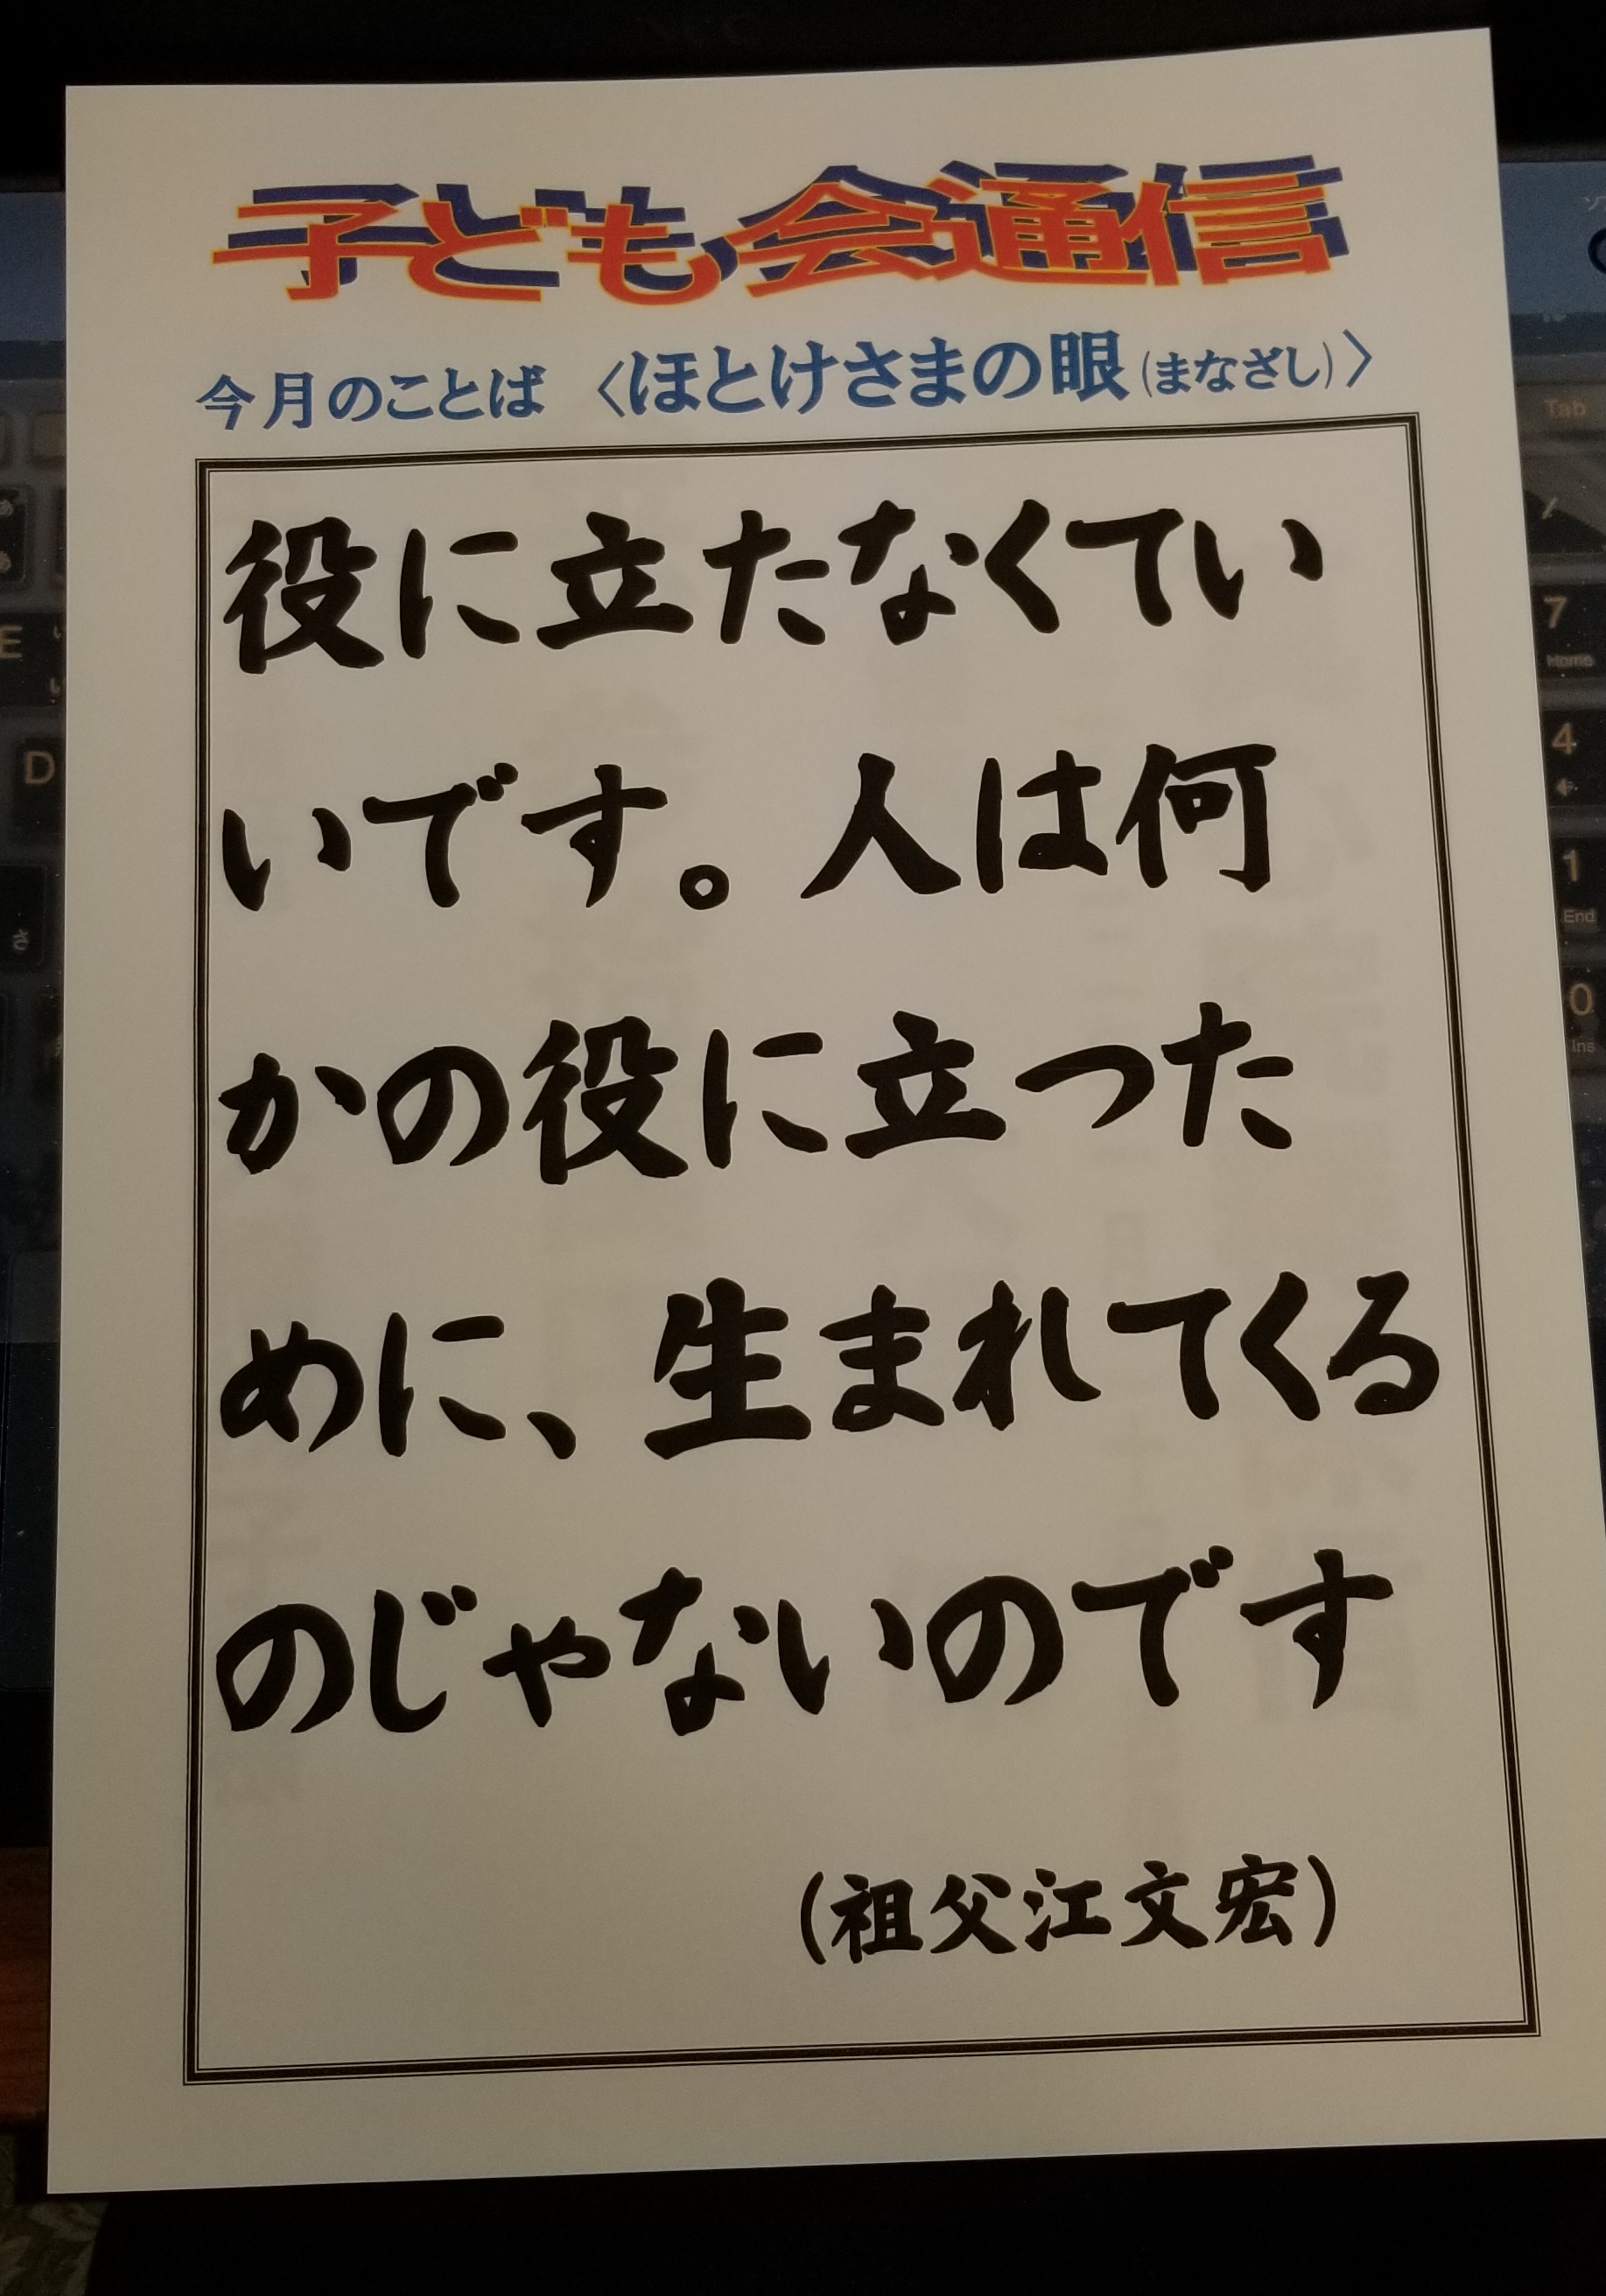 子ども会通信
今月のことば 〈ほとけさまの眼(まなざし)〉
役に立たなくてい
いです。人は何
かの役に立った
めに、生まれてくる
のじゃないのです
(祖父江文宏)
Tab
E
D
7
Home
4
1
End
0
Ins
さ